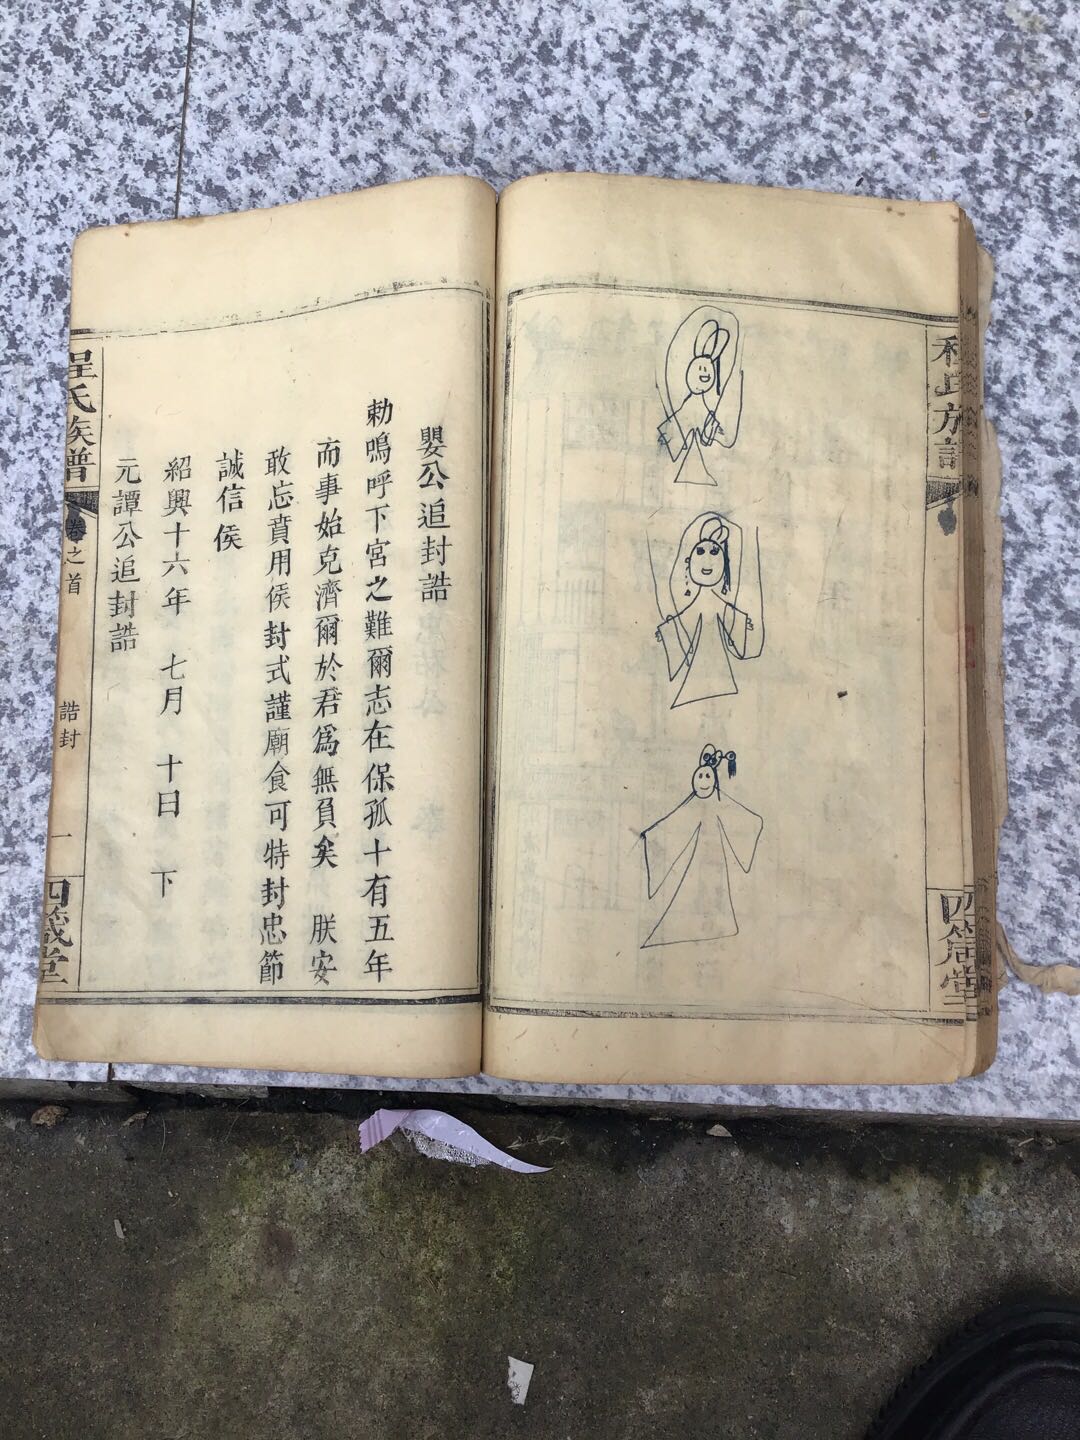 程氏族譜
四箴堂
嬰公追封誥
勅嗚呼下宮之難爾志在保孤十有五年
而事始克濟爾於君為無負矣 朕安
敢忘賁用侯封式謹廟食可特封忠節
誠信侯
紹興十六年 七月 十日 下
元譚公追封誥
程氏族譜
卷之首
誥封
一
四箴堂